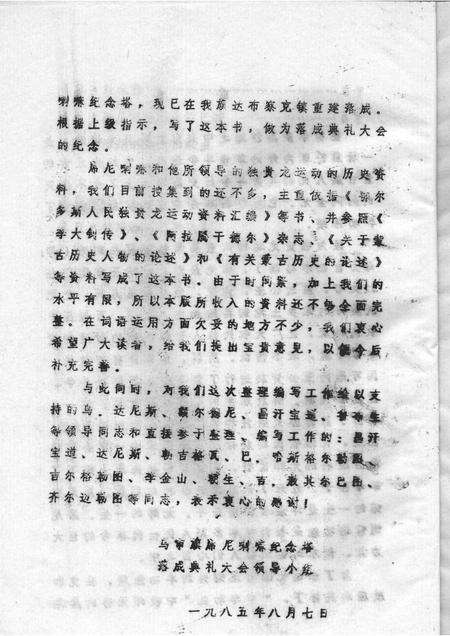 喇嘛纪念塔，现已在我旗达布察克镇重建落成。
根据上级指示，写了这本书，做为落成典礼大会
的纪念。
席尼喇嘛和他所领导的独贵龙运动的历史资
料，我们目前搜集到的还不多，主要依据《鄂尔
多斯人民独贵龙运动资料汇编》等书、并参照《
李大钊传》、《阿拉腾干德尔》杂志、《关于蒙
古历史人物的论述》和《有关蒙古历史的论述》
等资料写成了这本书。由于时间紧，加上我们的
水平有限，所以本版所收入的资料还不够全面完
整。在词语运用方面欠妥的地方不少，我们衷心
希望广大读者，给我们提出宝贵意见，以便今后
补充完善。
与此同时，对我们这次整理编写工作给以支
持的乌。达尼斯、额尔德尼、昌汗宝道、
等领导同志和直接参于整理、编写工作的：昌汗
宝道、达尼斯、勒古格瓦、巴。哈斯格尔勒图、
吉尔格勒图、李金山、敖生、百。敖其尔巴图、
齐尔迈勒图等同志，表示衷心的感谢！
乌审旗席尼喇嘛纪念塔
落成典礼大会领导小组
一九八五年八月七日